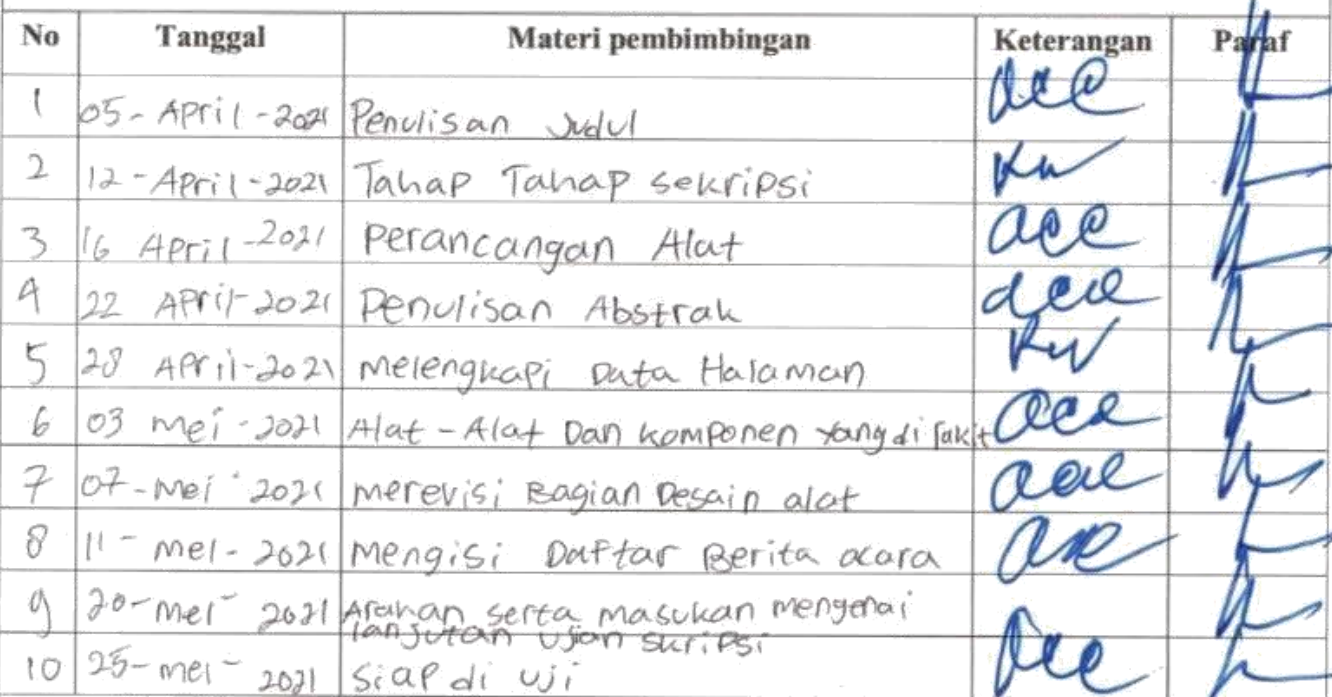 No Tanggal Materi pembimbingan Keterangan Paraf
1 05-April-2021 Penulisan Judul acc
2 12-April-2021 Tahap Tahap sekripsi
3 16 April-2021 Perancangan Alat acc
4 22 April-2021 Penulisan Abstrak acc
5 28 April-2021 melengkapi Data Halaman
6 03 mei-2021 Alat-Alat Dan komponen yang di acc
7 07-mei 2021 merevisi Bagian Desain alat acc
8 11-mei-2021 mengisi Daftar Berita acara acc
9 20-mei-2021 Arahan serta masukan mengenai
lanjutan ujian skripsi
10 25-mei-2021 siap di uji acc